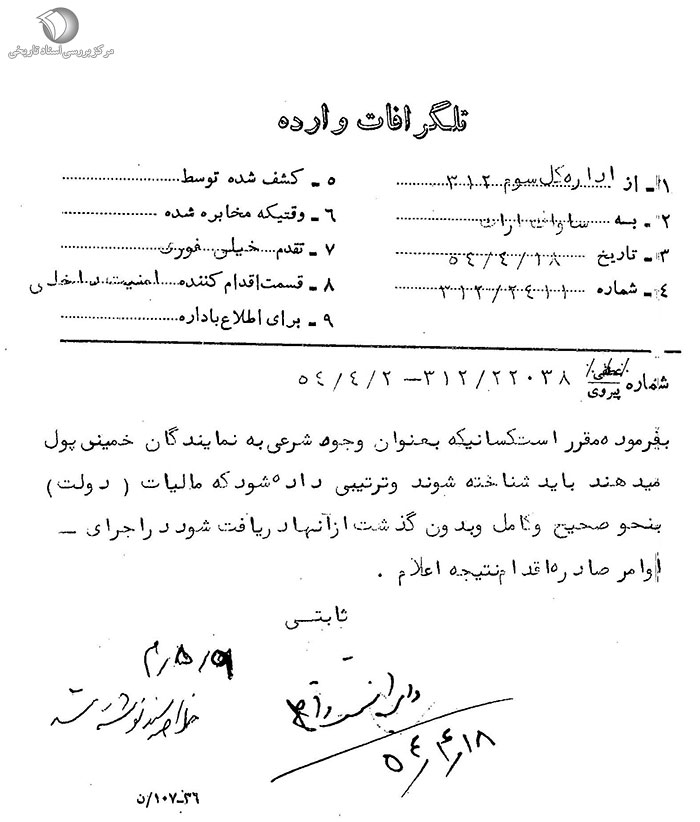 مرکز بررسی اسناد تاریخی
تلگرافات وارده
۱ـ از اداره کل سوم ۳۱۲
۲ـ به ساواک اراک
۳ـ تاریخ ۵۴/۴/۱۸
۴ـ شماره ۳۱۲/۲۴۱۱
۵ـ کشف شده توسط
۶ـ وقتیکه مخابره شده
۷ـ تقدم خیلی فوری
۸ـ قسمت اقدام کننده امنیت داخلی
۹ـ برای اطلاع باداره
شماره عطفی/پیروی ۳۱۲/۲۲۰۳۸ – ۵۴/۴/۲
بفرموده مقرر است کسانیکه بعنوان وجوه شرعی به نمایندگان خمینی پول
میدهند باید شناخته شوند وترتیبی داده شود که مالیات (دولت)
بنحو صحیح وکامل وبدون گذشت از آنها دریافت شود در اجرای –
اوامر صادره اقدام نتیجه اعلام .
ثابتی
۵۴/۴/۱۸
خلاصه سند نوشته شد
۳۶ـ۱۰۷/ن